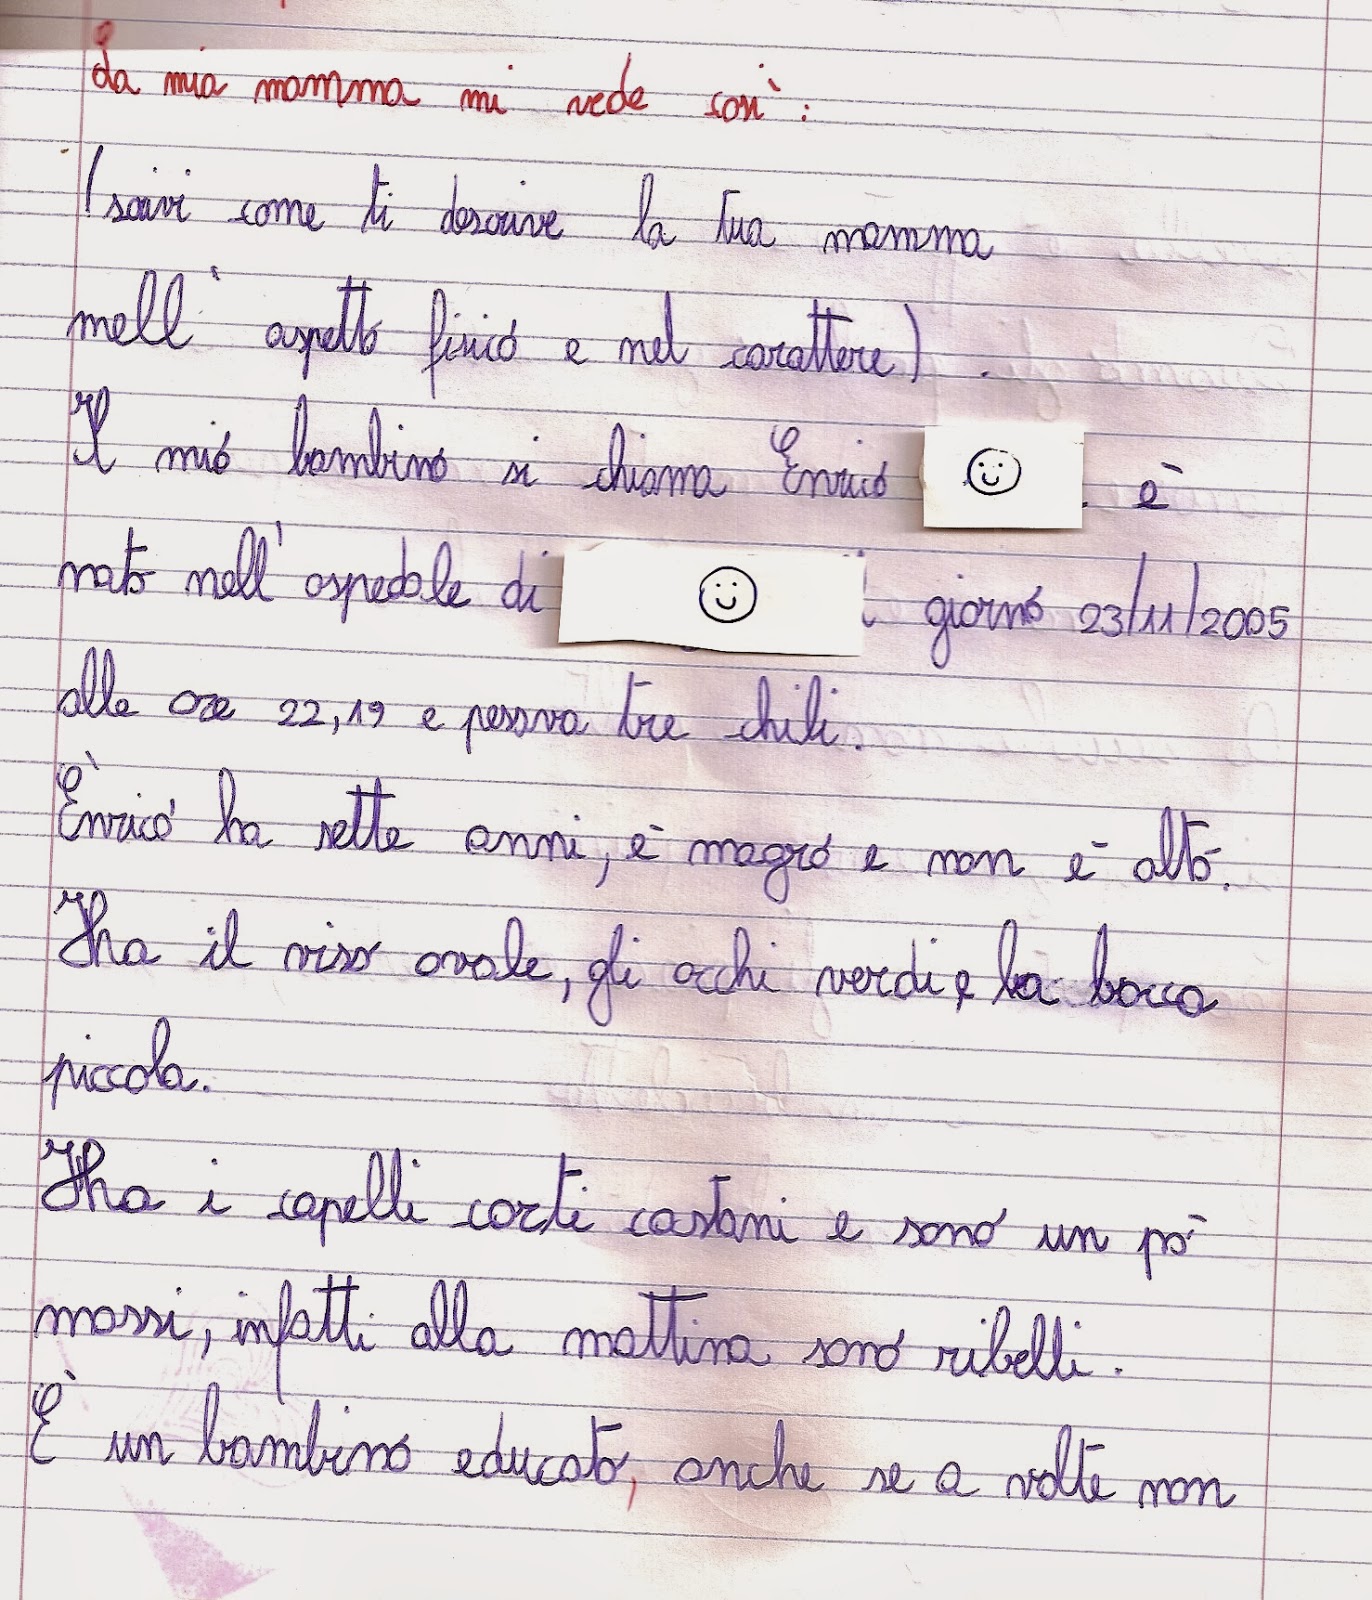 La mia mamma mi vede così:
(scrivi come ti descrive la tua mamma
nell' aspetto fisico e nel carattere).
Il mio bambino si chiama Enrico . è
nato nell' ospedale di l giorno 23/11/2005
alle ore 22,19 e pesava tre chili.
Enrico ha sette anni, è magro e non è alto.
Ha il viso ovale, gli occhi verdi e la bocca
piccola.
Ha i capelli corti castani e sono un pò
mossi, infatti alla mattina sono ribelli.
È un bambino educato, anche se a volte non